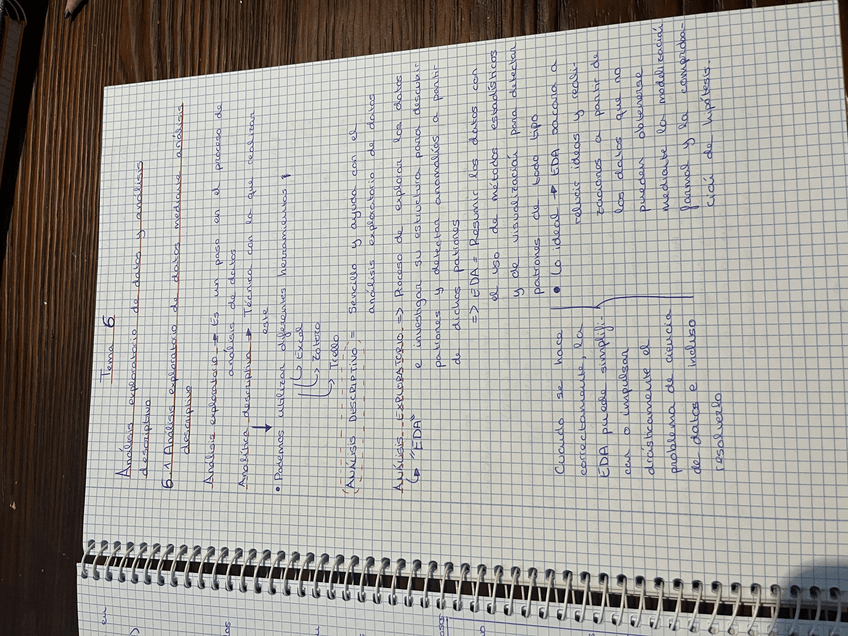 Tema 6
Análisis exploratorio de datos y análisis
descriptivo
6.1 Análisis exploratorio de datos mediante análisis
descriptivo
Análisis exploratorio → Es un paso en el proceso de
análisis de datos
Analítica descriptiva → Técnica con la que realizar
este
• Podemos utilizar diferentes herramientas
↳ Excel
↳ Zotero
↳ Trello
ANÁLISIS DESCRIPTIVO = Sencillo y ayuda con el
análisis exploratorio de datos
ANÁLISIS EXPLORATORIO => Proceso de explorar los datos
↳ "EDA"
e investigar su estructura para descubrir
patrones y detectar anomalías a partir
de dichos patrones
=> EDA = Resumir los datos con
el uso de métodos estadísticos
y de visualización para detectar
patrones de todo tipo
Cuando se hace
correctamente, la
EDA puede simplifi-
car o impulsar
drásticamente el
problema de ciencia
de datos e incluso
resolverlo
• Lo ideal → EDA sacara a
relucir ideas y reali-
zaciones a partir de
los datos que no
pueden obtenerse
mediante la modelización
formal y la comproba-
ción de hipótesis.
en